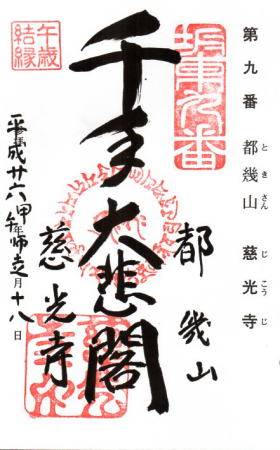 第九番 都幾山 慈光寺
ときさん じこうじ
坂東九番
都幾山
千手大悲閣
慈光寺
午歳
結縁
平成廿六甲午年師走月十八日